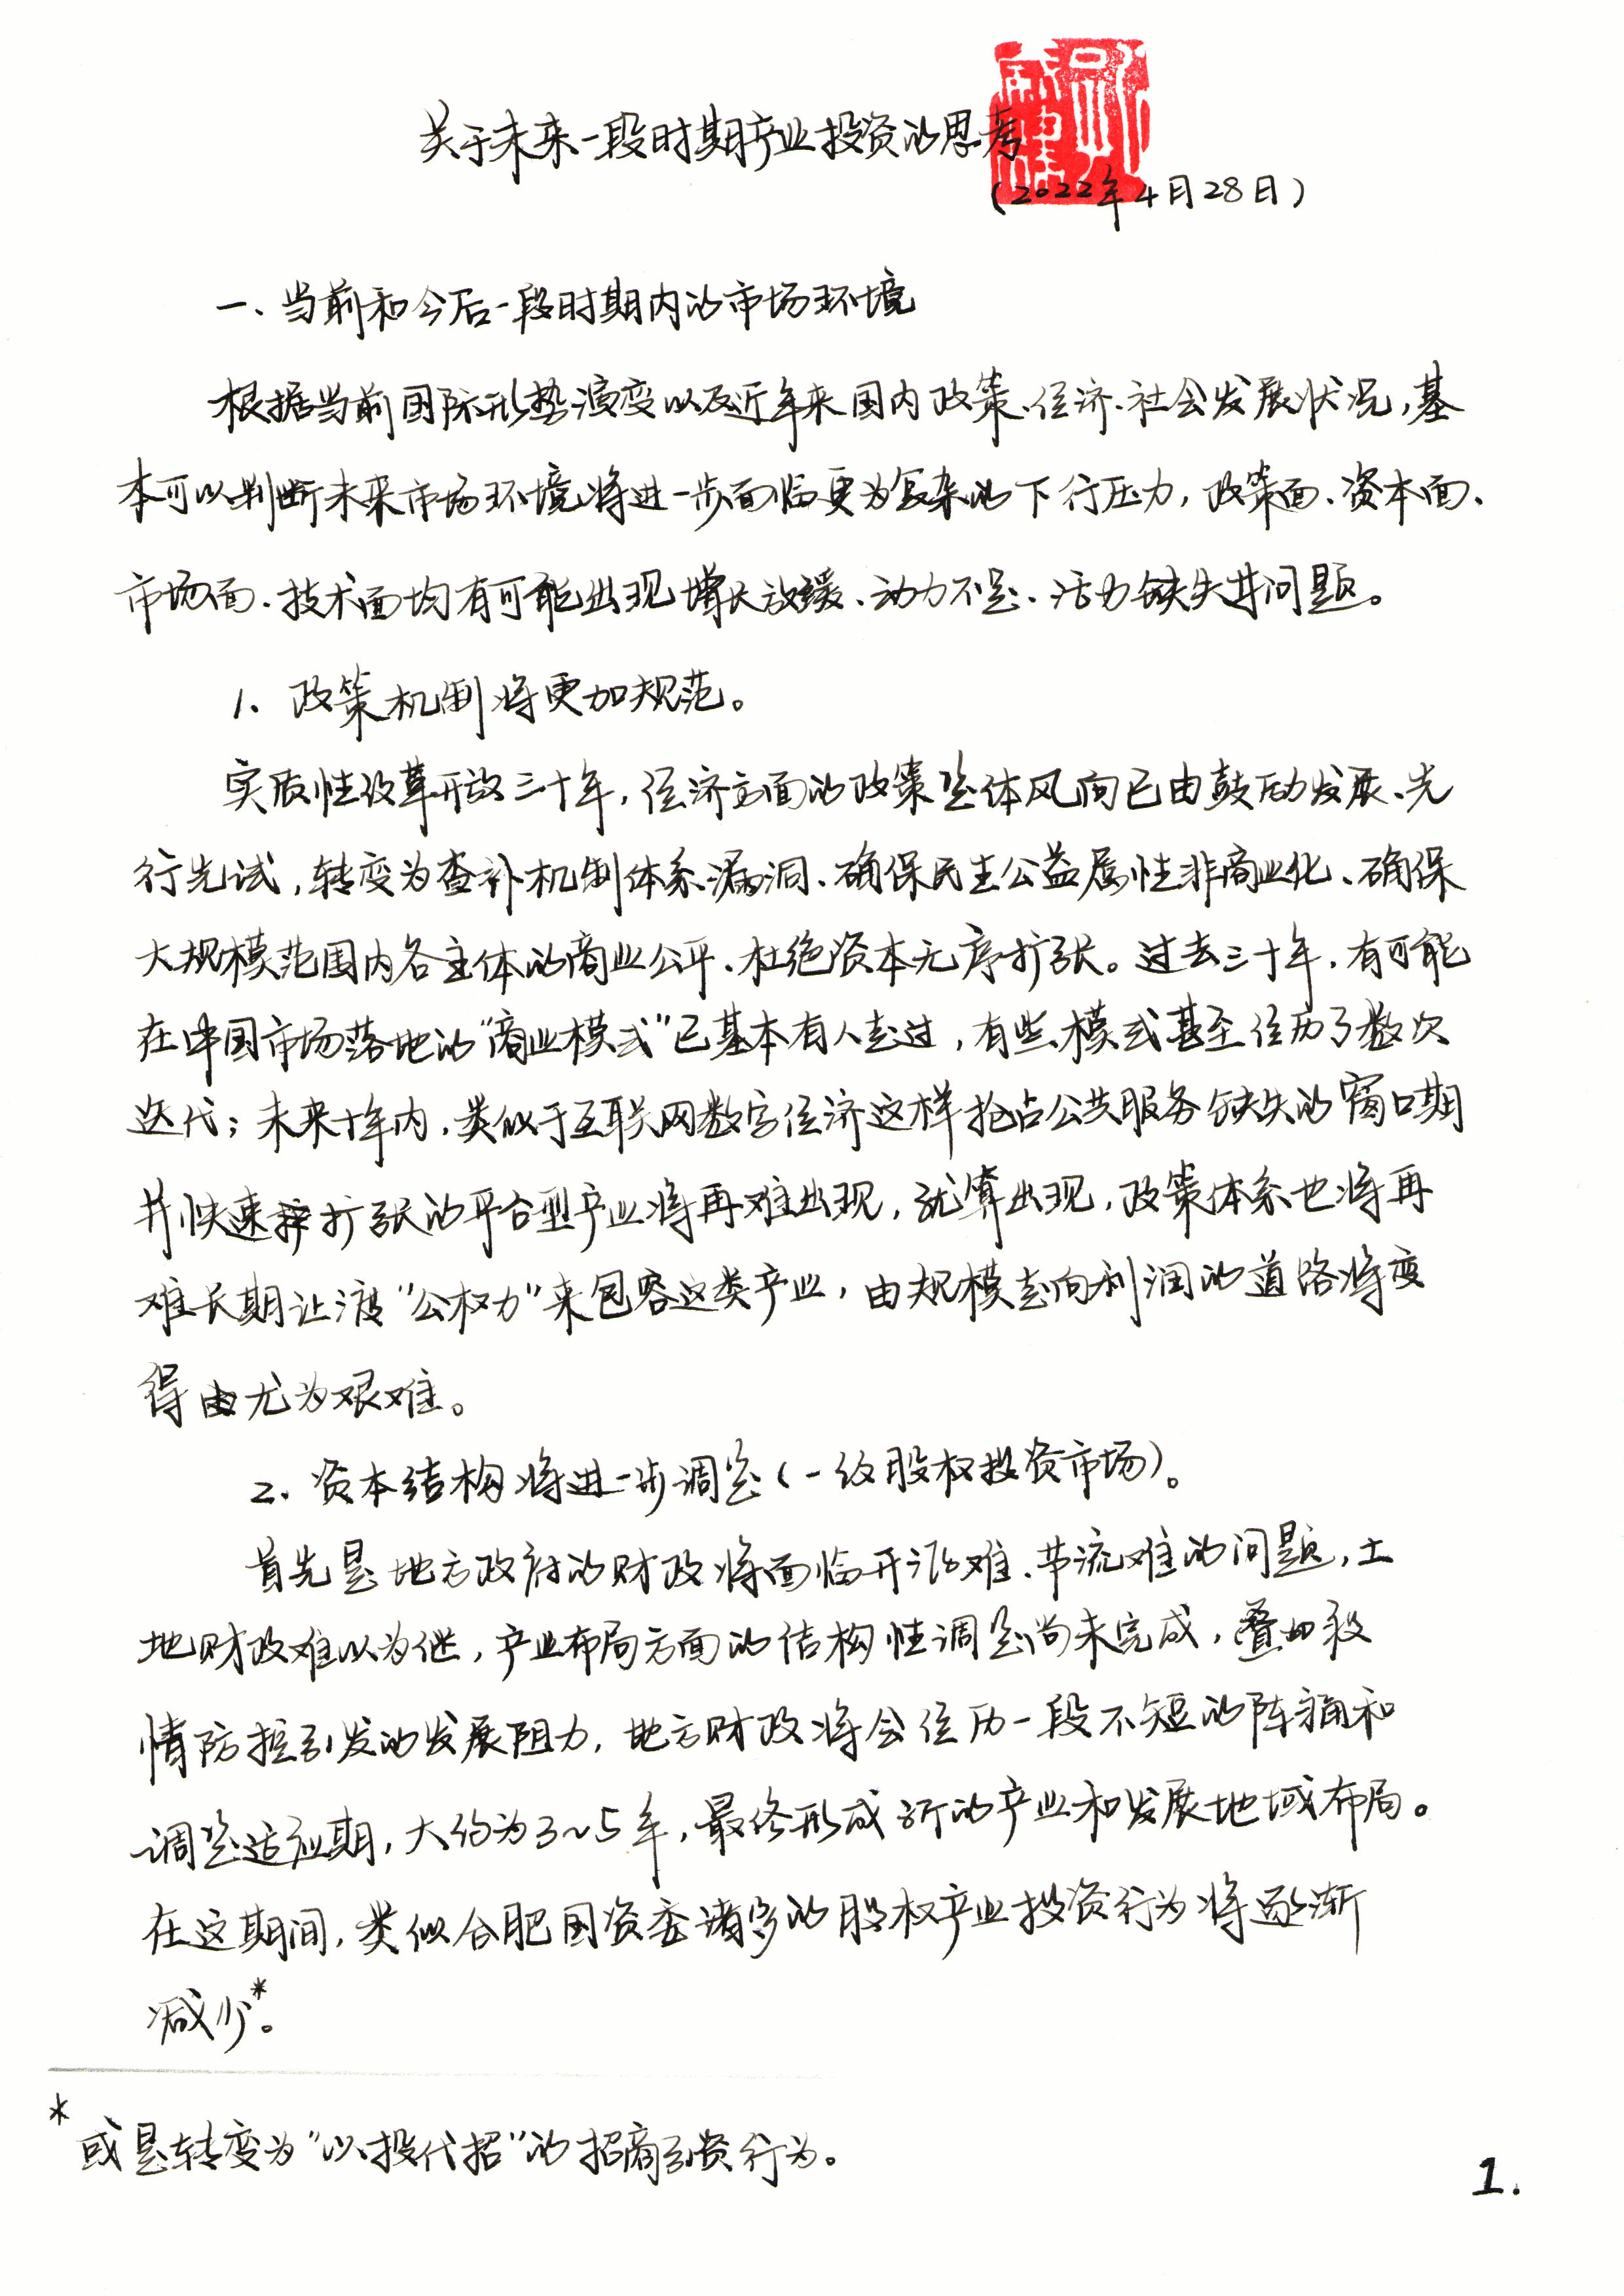 关于未来一段时期产业投资的思考
(2022年4月28日)
一、当前和今后一段时期内的市场环境
根据当前国际形势演变以及近年来国内政策、经济、社会发展状况,基
本可以判断未来市场环境将进一步面临更为复杂的下行压力,政策面、资本面、
市场面、技术面均有可能出现增长放缓、动力不足、活力缺失等问题。
1、政策机制将更加规范。
实质性改革开放三十年,经济方面的政策整体风向已由鼓励发展、先
行先试,转变为查补机制体系漏洞、确保民生公益属性非商业化、确保
大规模范围内各主体的商业公平、杜绝资本无序扩张。过去三十年,有可能
在中国市场落地的“商业模式”已基本有人走过,有些模式甚至经历了数次
迭代;未来十年内,类似于互联网数字经济这样抢占公共服务缺失的窗口期
并快速扩张的平台型产业将再难出现,就算出现,政策体系也将再
难长期让渡“公权力”来包容这类产业,由规模走向利润的道路将变
得尤为艰难。
2、资本结构将进一步调整(一级股权投资市场)。
首先是地方政府的财政将面临开源难、节流难的问题,土
地财政难以为继,产业布局方面的结构性调整尚未完成,叠加疫
情防控引发的发展阻力,地方财政将会经历一段不短的阵痛和
调整适应期,大约为3~5年,最终形成新的产业和发展地域布局。
在这期间,类似合肥国资委诸多的股权产业投资行为将逐渐
减少*。
* 或是转变为“以投代招”的招商引资行为。
1.